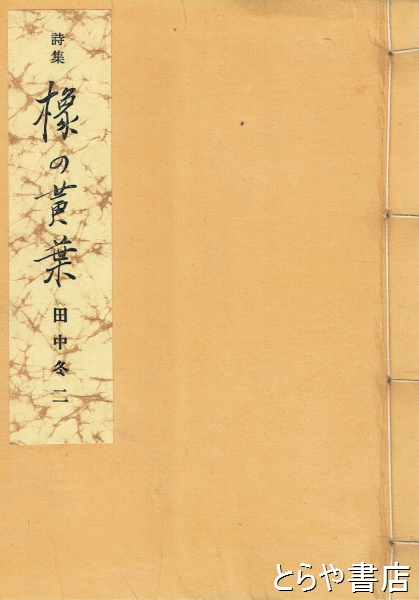 詩集
橡の黄葉
田中冬二
とらや書店